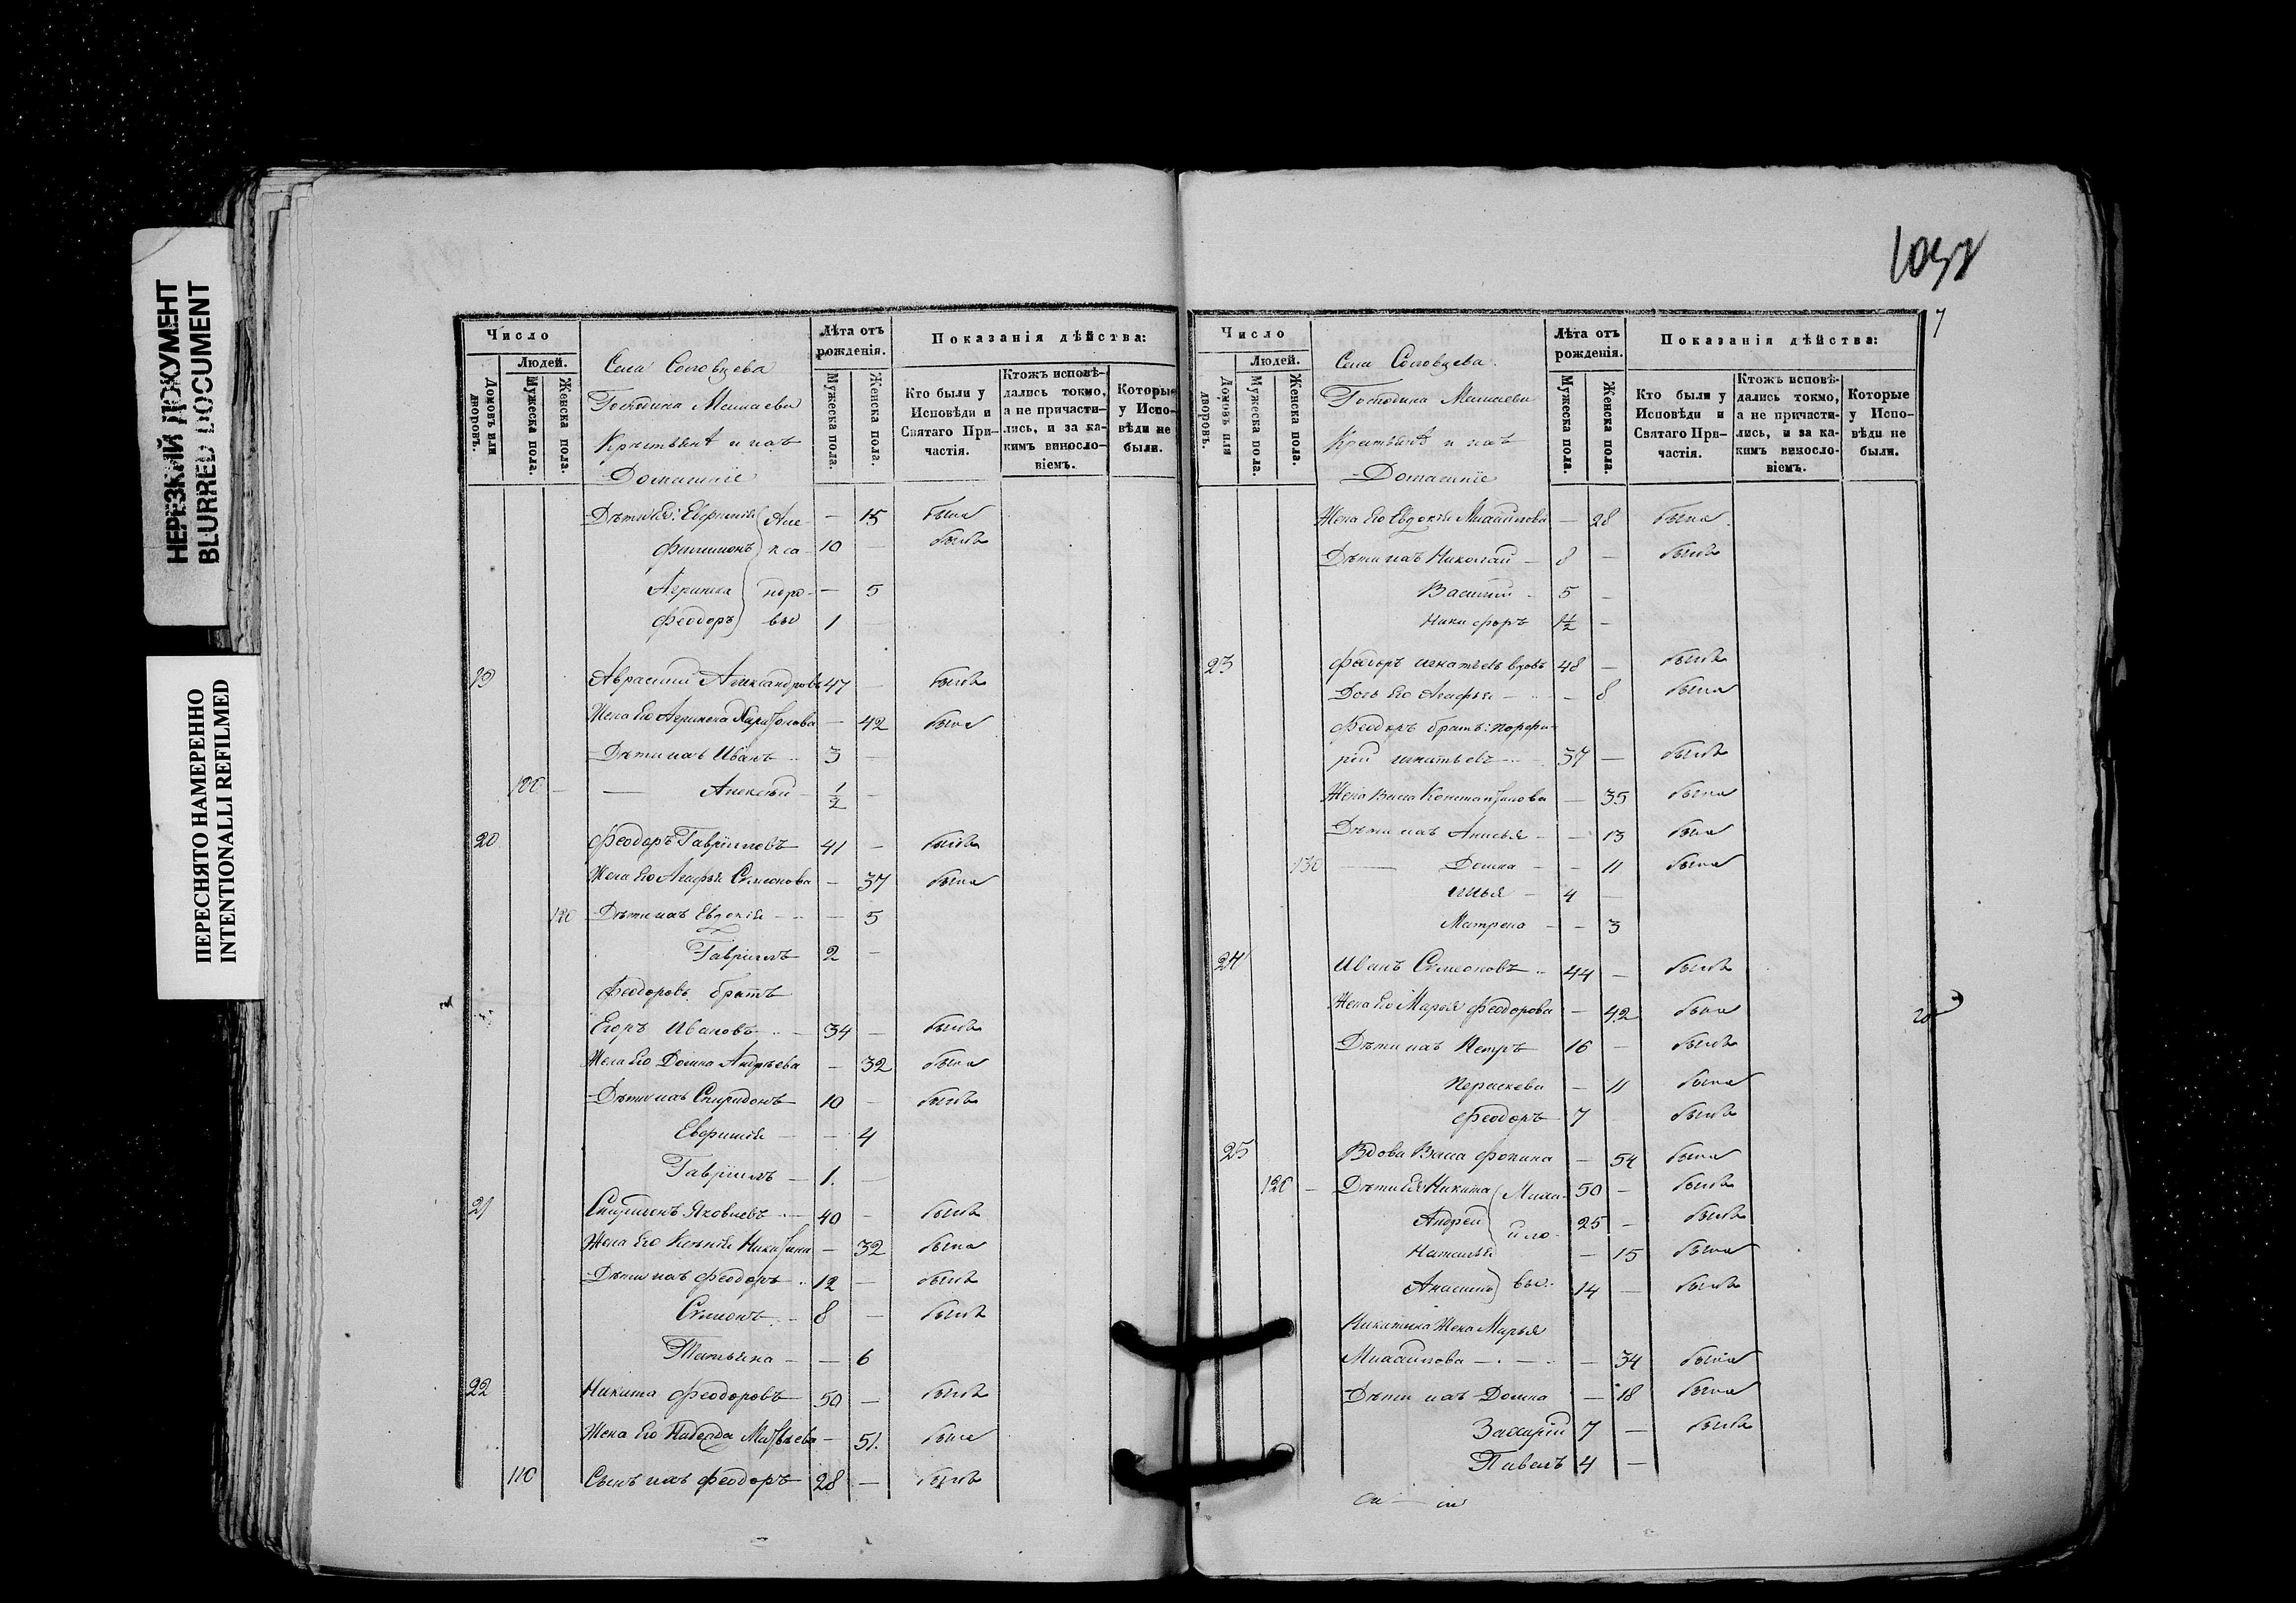 НЕРЕЗКИЙ ДОКУМЕНТ
BLURRED DOCUMENT
ПЕРЕСНЯТО НАМЕРЕННО
INTENTIONALLI REFILMED
Число
Людей.
Домовъ или дворовъ.
Мужеска пола.
Женска пола.
Села Соловцева
Господина
Домашніе
Лѣта отъ рожденія.
Мужеска пола.
Женска пола.
Показанія дѣйства:
Кто были у Исповѣди и Святаго Причастія.
Ктожъ исповѣдались токмо, а не причастились, и за какимъ винословіемъ.
Которые у Исповѣди не были.
Дѣти Ея: Евфимія — 15 была
10 — былъ
— 5
Феодоръ 1 —
19 Александровъ 47 — былъ
Жена Его Харитонова — 42 была
Дѣти ихъ Иванъ 3 —
100 — Алексѣй ½ —
20 Феодоръ Гавриловъ 41 — былъ
Жена Его Агафья Симеонова — 37 была
Дѣти ихъ Евдокія — 5
Гавріилъ 2 —
Феодоровъ братъ
Егоръ Ивановъ 34 — былъ
Жена Его Домна Андреева — 32 была
Дѣти ихъ Спиридонъ 10 — былъ
Евфимія — 4
Гавріилъ 1. —
21 Яковлевъ 40 — былъ
Жена Его Ксенія Никитина — 32 была
Дѣти ихъ Феодоръ 12 — былъ
Симеонъ 8 — былъ
Татьяна — 6
22 Никита Феодоровъ 50 — былъ
Жена Его Надежда Матвѣева — 51. была
110 Сынъ ихъ Феодоръ 28 — былъ
7
Число
Людей.
Домовъ или дворовъ.
Мужеска пола.
Женска пола.
Села Соловцева.
Господина
Домашніе
Лѣта отъ рожденія.
Мужеска пола.
Женска пола.
Показанія дѣйства:
Кто были у Исповѣди и Святаго Причастія.
Ктожъ исповѣдались токмо, а не причастились, и за какимъ винословіемъ.
Которые у Исповѣди не были.
Жена Его Евдокія Михайлова — 28 была
Дѣти ихъ Николай 8 — былъ
Василій 5 —
Никифоръ 1½ —
23 Федоръ Игнатьевъ вдовъ 48 — былъ
Дочь Его Агафья — 8 была
Феодоръ братъ: Порфи-
рій Игнатьевъ 37 — былъ
Жена Васса Константинова — 35 была
Дѣти ихъ Анисья — 13 была
130 — Домна — 11 была
Илья 4 —
Матрена — 3
24 Иванъ Симеоновъ 44 — былъ
Жена Его Марья Феодорова — 42 была
Дѣти ихъ Петръ 16 — былъ
Параскева — 11 была
Феодоръ 7 былъ
25 Вдова Васса Фокина — 54 была
120 — Дѣти Ея Никита Миха- 50 — былъ
Андрей йло- 25 — былъ
Наталья — 15 была
вы 14 — былъ
Никитина Жена Марья
Михайлова — 34 была
Дѣти ихъ Домна — 18 была
Захарій 7 — былъ
Павелъ 4 —